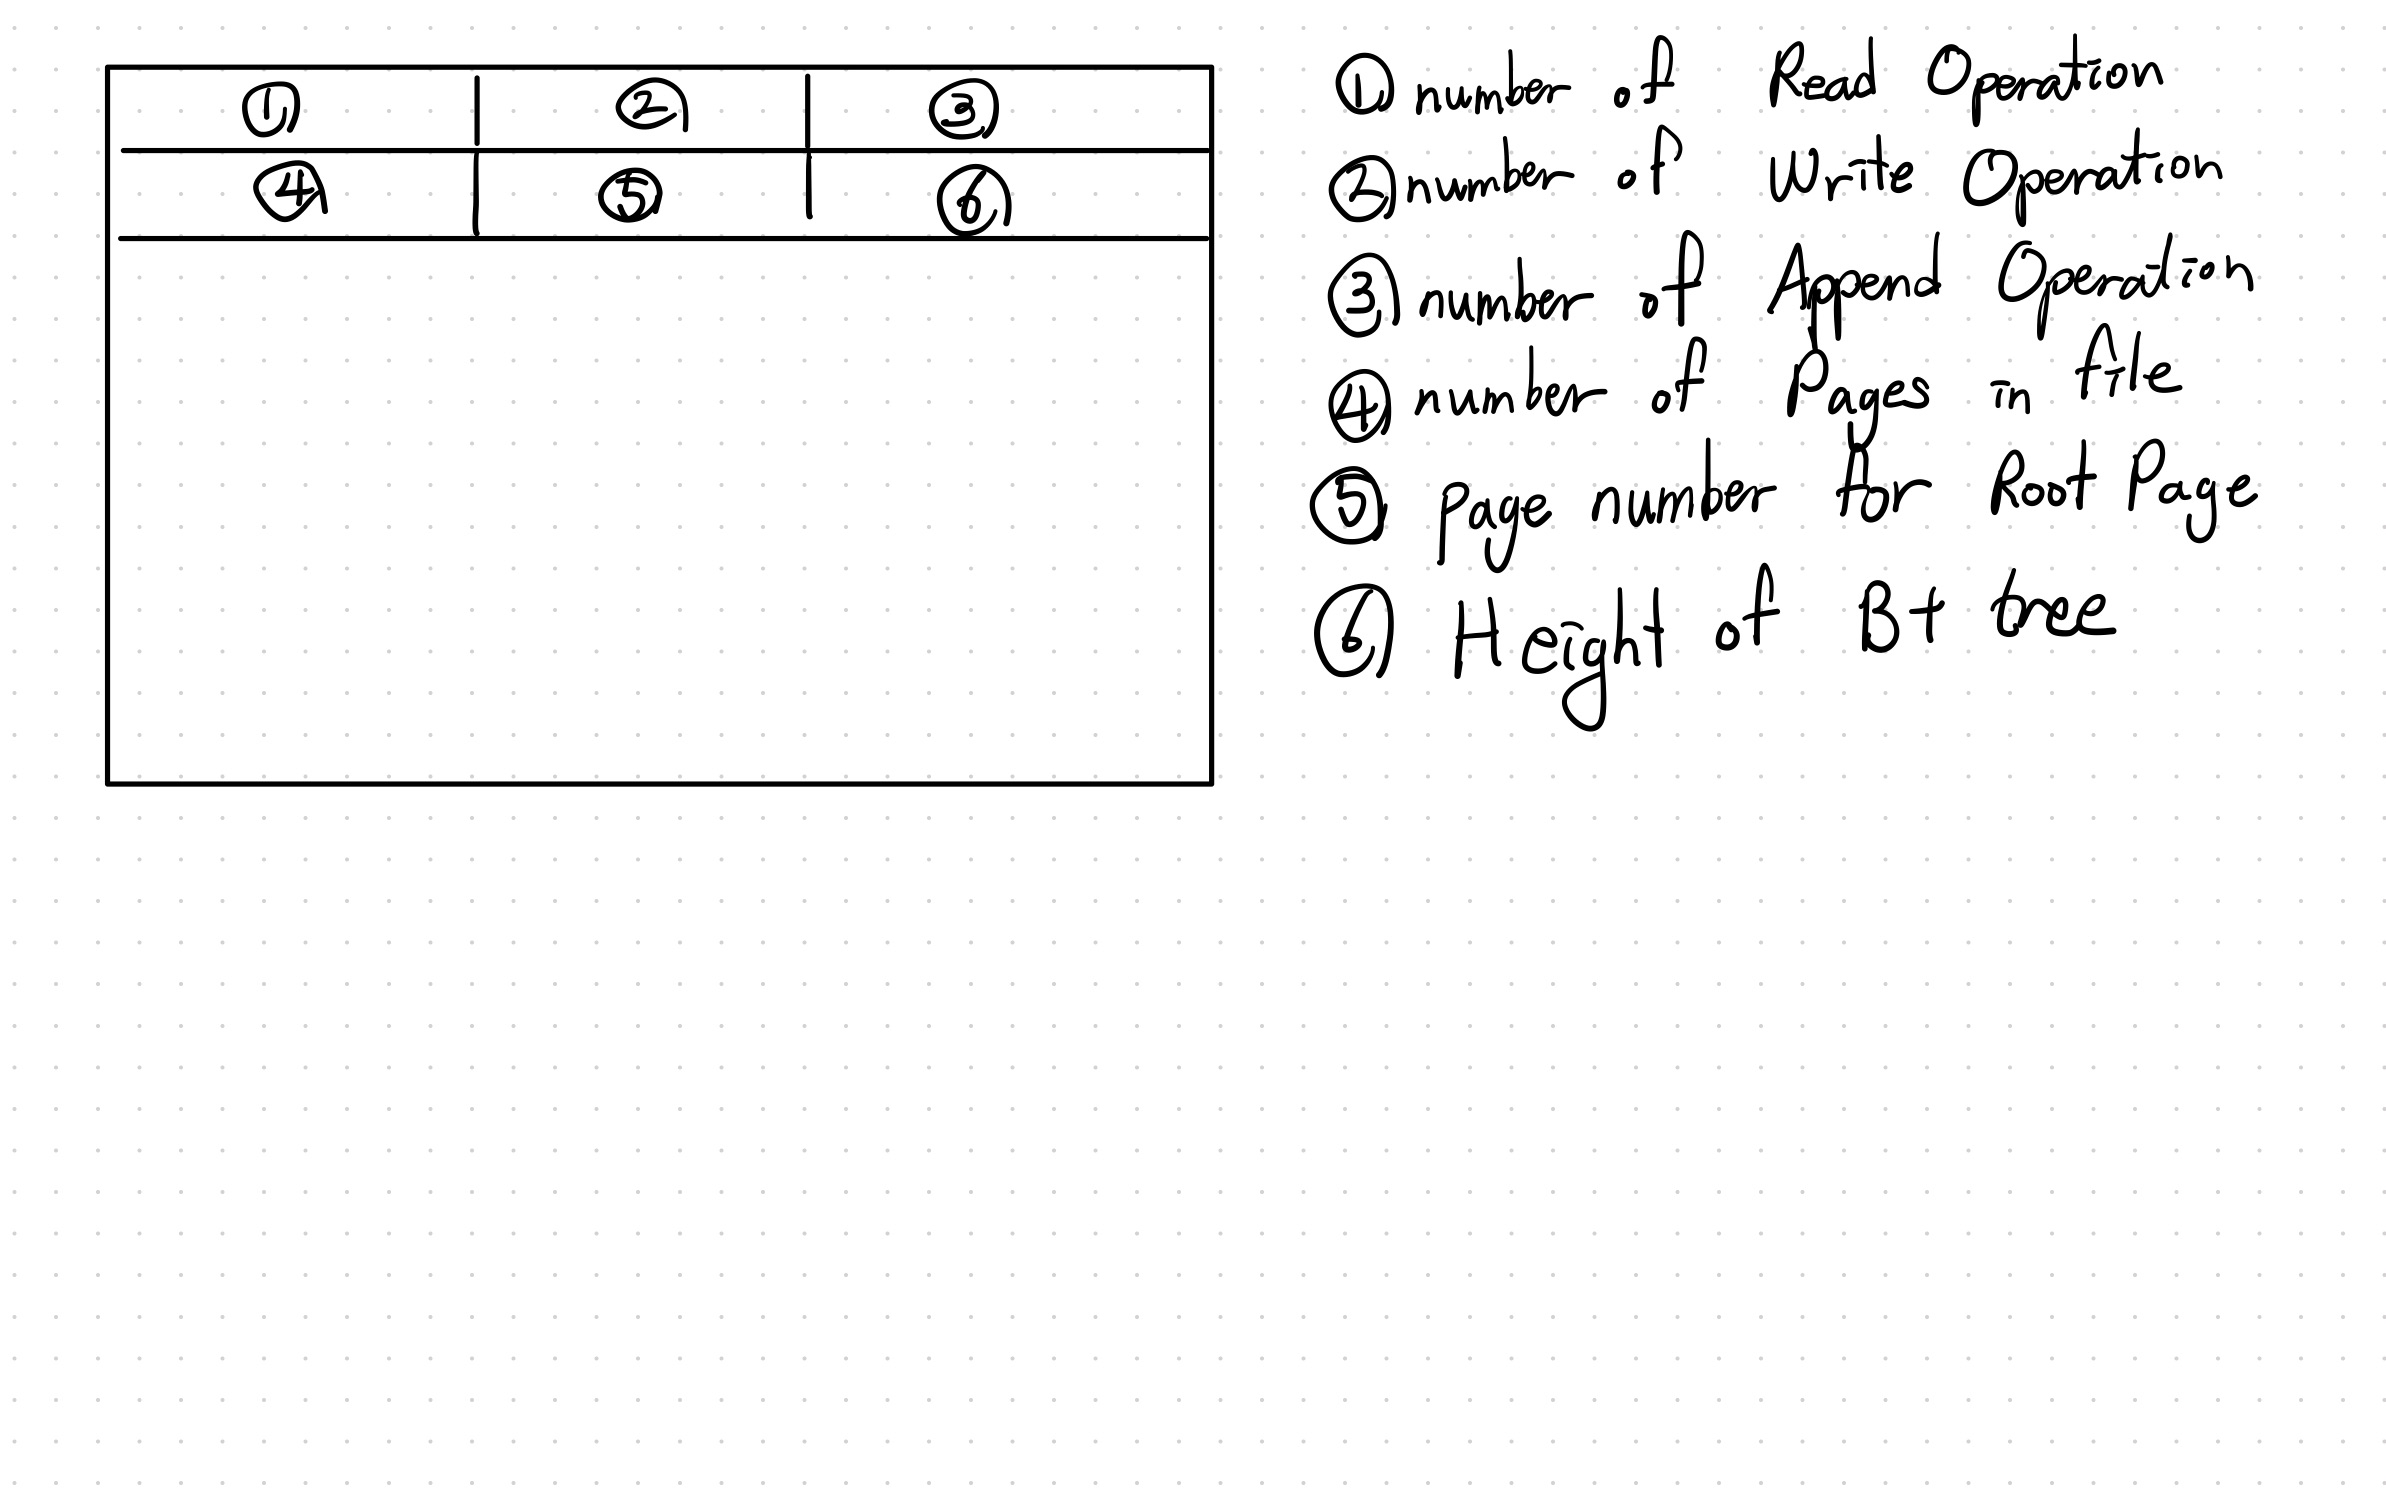 ① ② ③
④ ⑤ ⑥
① number of Read Operation
② number of Write Operation
③ number of Append Operation
④ number of Pages in file
⑤ Page number for Root Page
⑥ Height of B+ tree